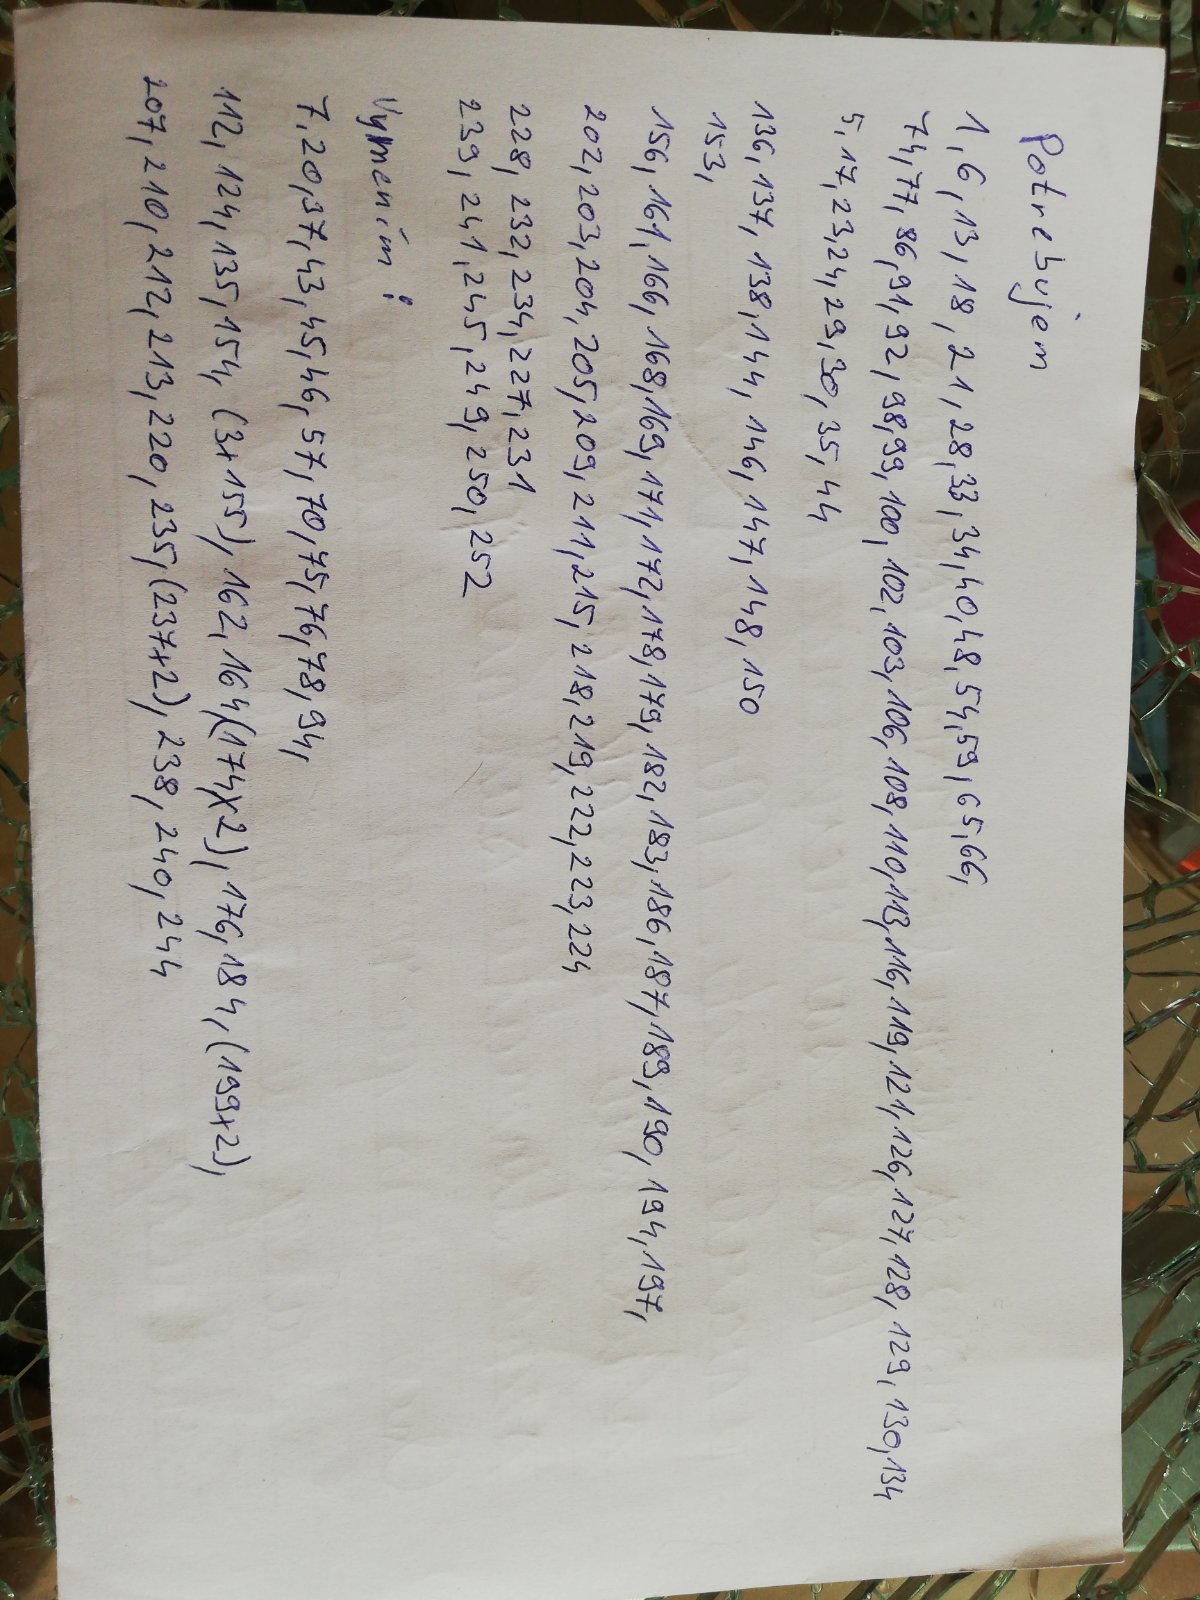 Potrebujem
1, 6, 13, 18, 21, 28, 33, 34, 40, 48, 54, 59, 65, 66,
74, 77, 86, 91, 92, 98, 99, 100, 102, 103, 106, 108, 110, 113, 116, 119, 121, 126, 127, 128, 129, 130, 134
5, 17, 23, 24, 29, 30, 35, 44
136, 137, 138, 144, 146, 147, 148, 150
153,
156, 161, 166, 168, 169, 171, 172, 178, 179, 182, 183, 186, 187, 189, 190, 194, 197,
202, 203, 204, 205, 209, 211, 215, 218, 219, 222, 223, 224
228, 232, 234, 227, 231
239, 241, 245, 249, 250, 252
Vymením :
7, 20, 37, 43, 45, 46, 57, 70, 75, 76, 78, 94,
112, 124, 135, 154, (3x155), 162, 164, (174x2), 176, 184, (199x2),
207, 210, 212, 213, 220, 235, (237x2), 238, 240, 244